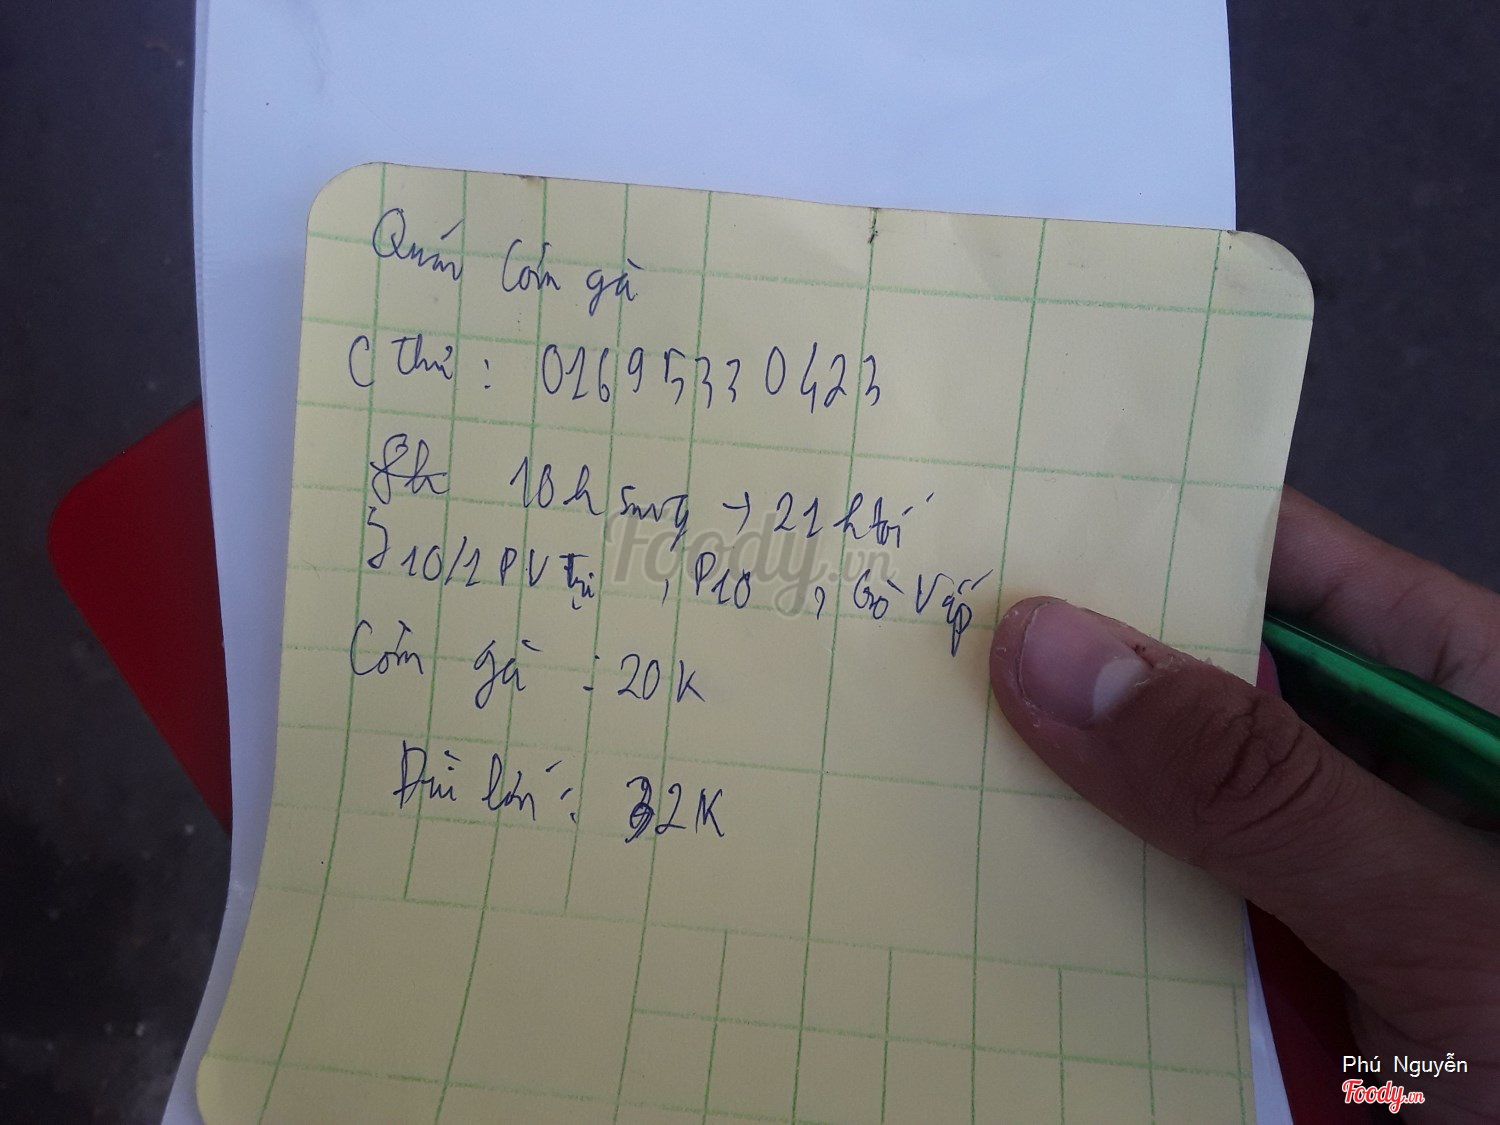 Quán Cơm gà
C Thu : 01695330423
8h 10h sáng → 21h tối
510/1 PV Trị , P10 , Gò Vấp
Cơm gà : 20K
Đùi lớn : 32K
Foody.vn
Phú Nguyễn
Foody.vn